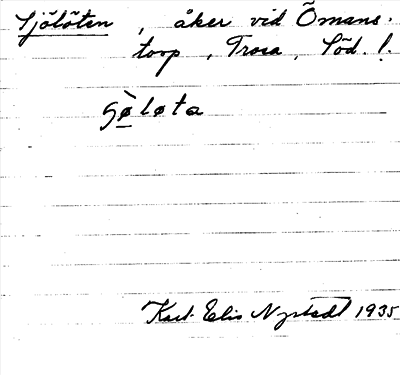 Sjölöten, åker vid Ömans-
torp, Trosa, Söd. l.
Karl Elis Nystedt 1935